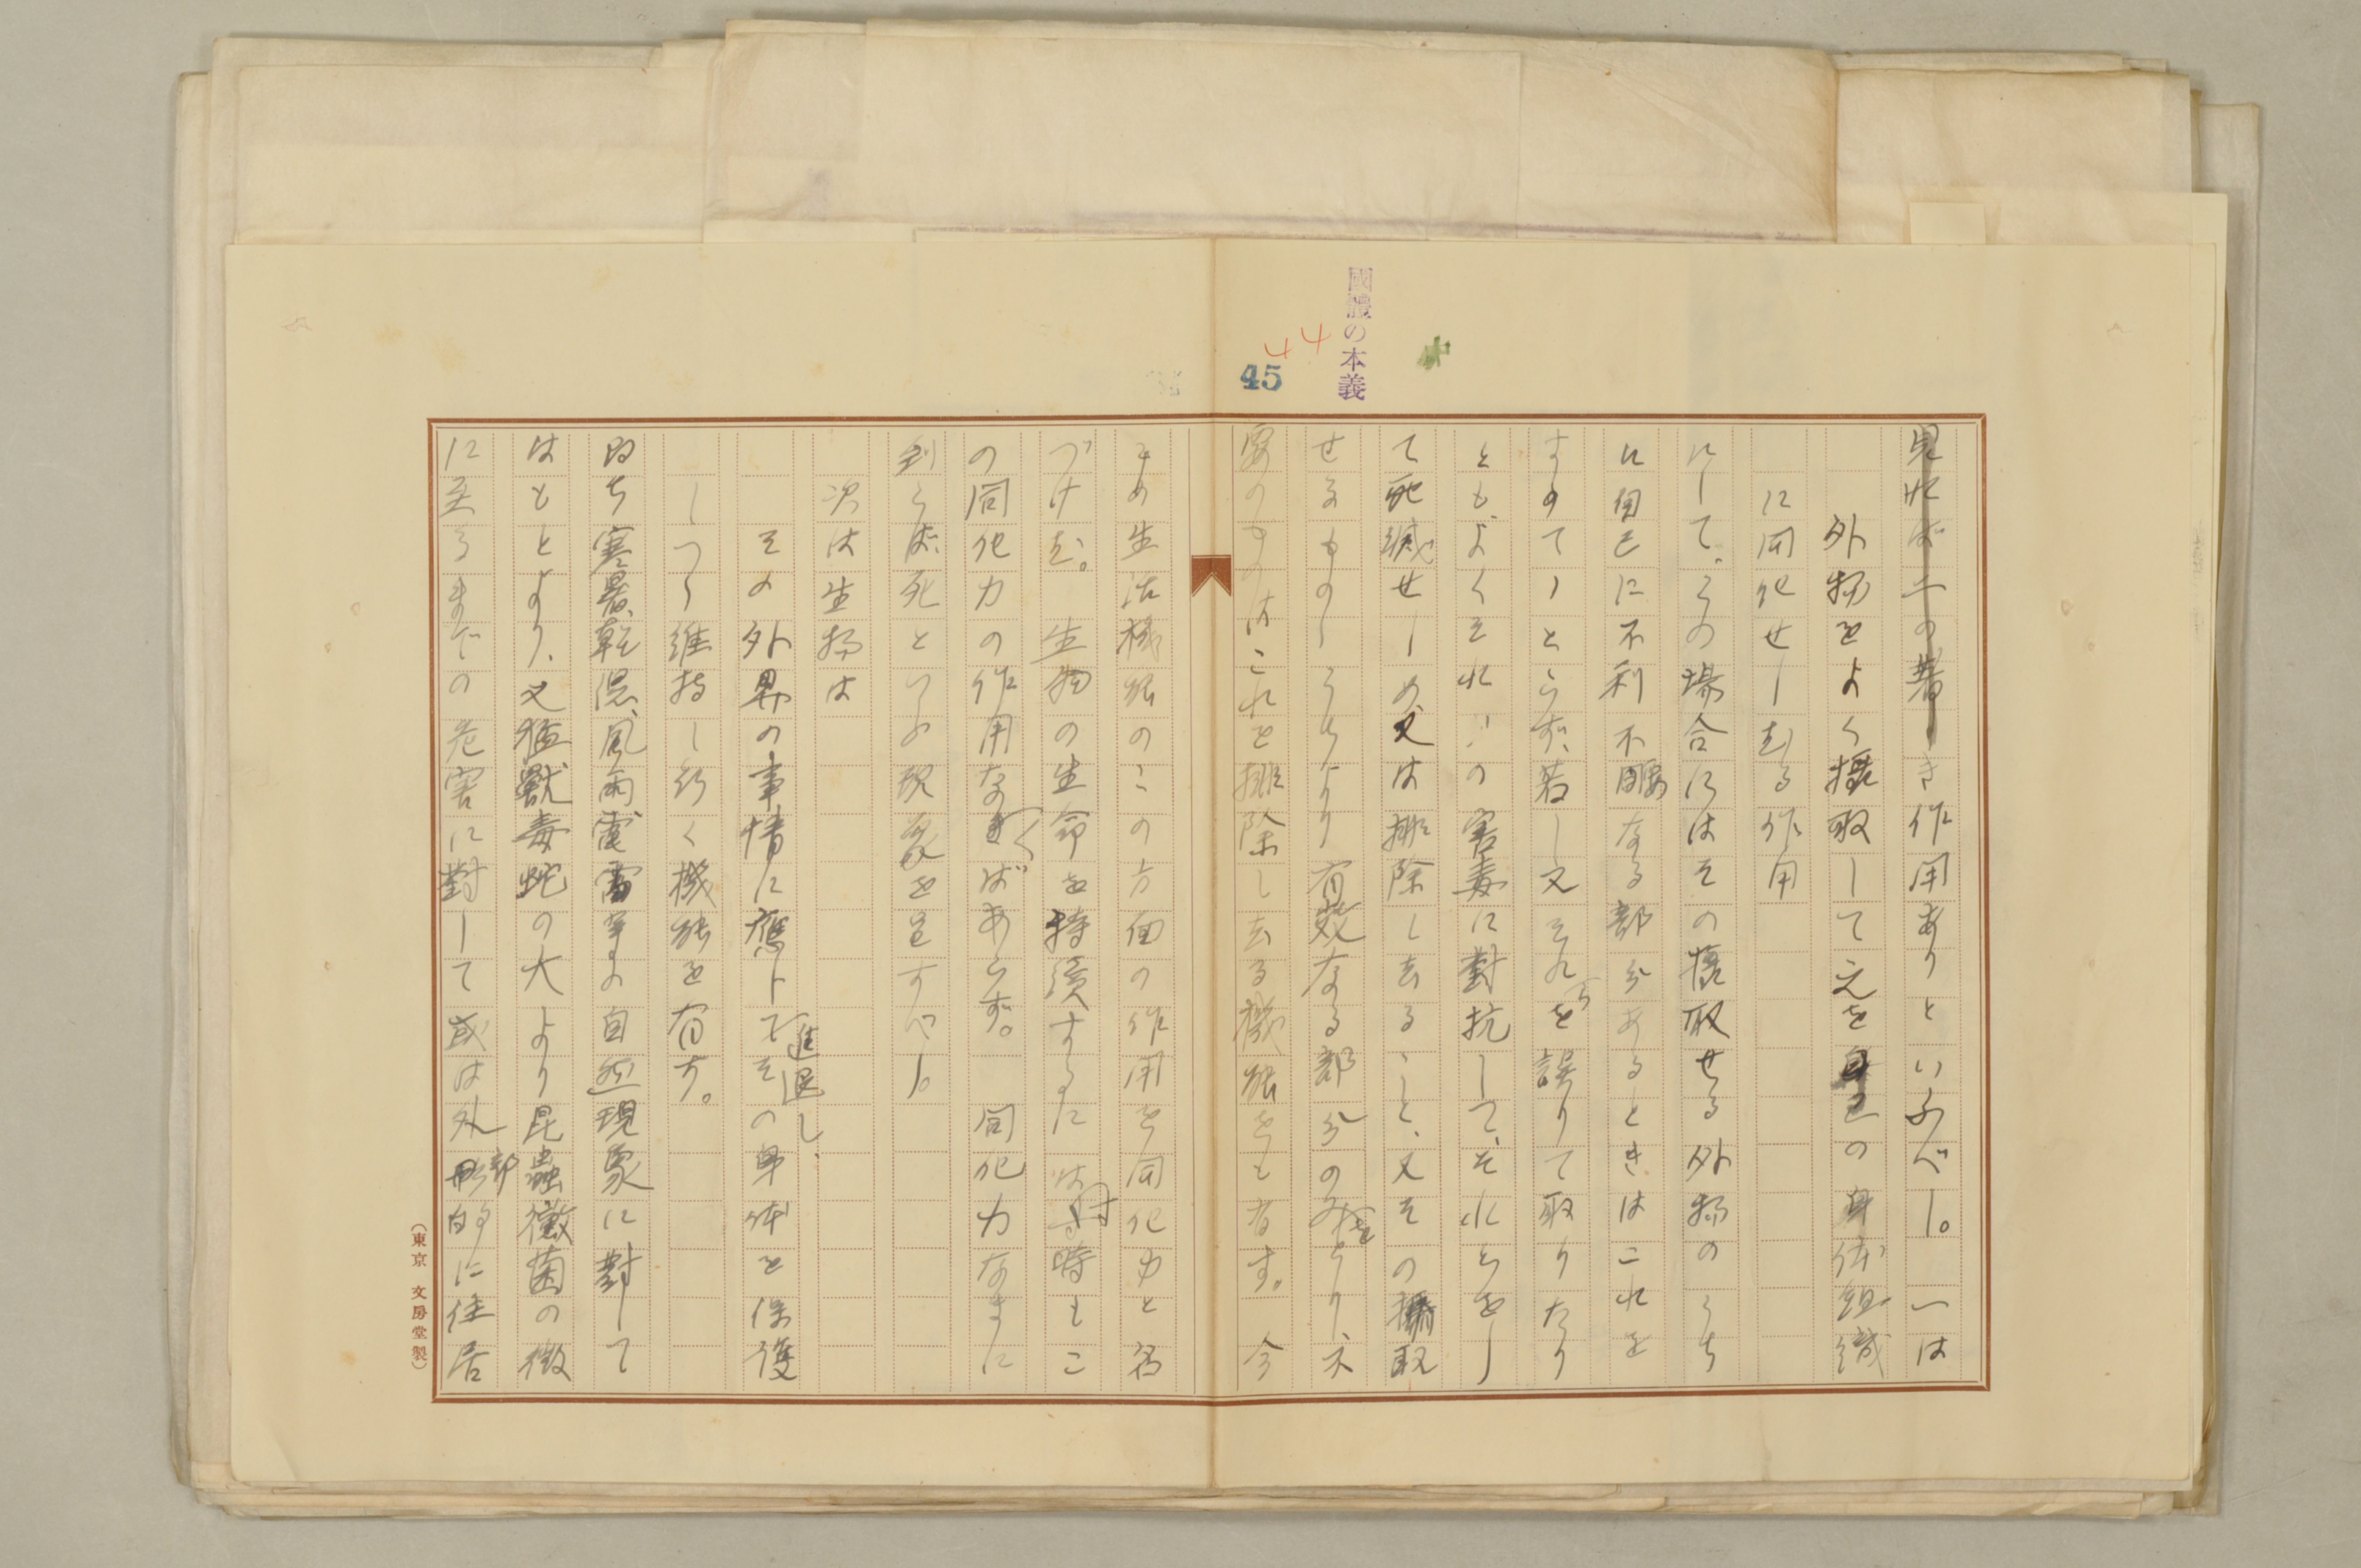 國體の本義
45
44
見れば二の著しき作用ありといふべし。一は
外物をよく攝取して之を自己の身体組織
に同化せしむる作用
にして、この場合にはその攝取せる外物のうち
に自己に不利不要なる部分あるときはこれを
すのてことらず、若し又それを誤りて取りたり
とも、よくそれの害毒に對抗して、それをし
て死滅せしめ、又は排除し去ること、又その攝取
せるものゝうちより有效なる部分のみをとり、不
要のものはこれを排除し去る機能をも有す。今
その生活機能のこの方面の作用を同化力と名
づけむ。生物の生命を持續するには片時もこ
の同化力の作用なくばあらず。同化力なきに
到らば、死といふ現象を呈すべし。
次は生物は
その外界の事情に應じて進退し、その身体を保護
しつゝ維持し行く機能を有す。
即ち寒暑、乾濕、風雨雷電等の自然現象に對して
はもとより、又猛獸毒蛇の大より昆蟲黴菌の微
に至るまでの危害に對して或は外部的に住居
(東京 文房堂製)